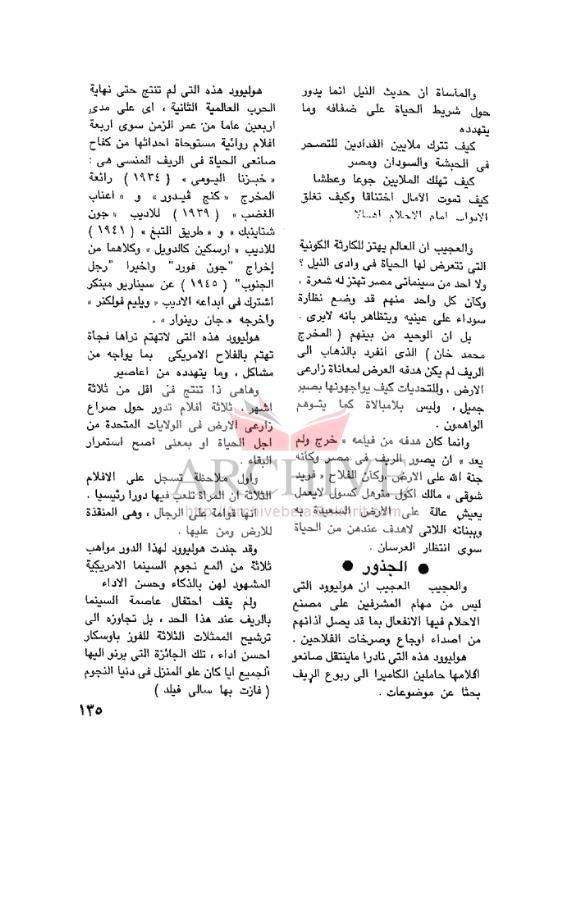 والمأساة ان حديث النيل انما يدور
حول شريط الحياة على ضفافه وما
يتهدده
كيف تترك ملايين الفدادين للتصحر
فى الحبشة والسودان ومصر
كيف تهلك الملايين جوعا وعطشا
كيف تموت الآمال اختناقا وكيف تغلق
الابواب امام الاحلام
والعجيب ان العالم يهتز للكارثة الكونية
التى تتعرض لها الحياة فى وادى النيل ؟
ولا احد من سينمائى مصر تهتز له شعرة ،
وكأن كل واحد منهم قد وضع نظارة
سوداء على عينيه ويتظاهر بانه لايرى .
بل ان الوحيد من بينهم ( المخرج
محمد خان ) الذى انفرد بالذهاب الى
الريف لم يكن هدفه العرض لمعاناة زارعى
الارض ، وللتحديات كيف يواجهونها بصبر
جميل ، وليس بلامبالاة كما يتوهم
الواهمون .
وانما كان هدفه من فيلمه « خرج ولم
يعد » ان يصور الريف فى مصر وكأنه
جنة الله على الارض ،وكأن الفلاح « فريد
شوقى » مالك اكول مترهل كسول لايعمل
يعيش عالة على الارض السعيدة به
وببناته اللاتى لاهدف عندهن من الحياة
سوى انتظار العرسان .
● الجذور ●
والعجيب العجيب ان هوليوود التى
ليس من مهام المشرفين على مصنع
الاحلام فيها الانفعال بما قد يصل آذانهم
من اصداء اوجاع وصرخات الفلاحين .
هوليوود هذه التى نادرا ماينتقل صانعو
افلامها حاملين الكاميرا الى ربوع الريف
بحثا عن موضوعات .
هوليوود هذه التى لم تنتج حتى نهاية
الحرب العالمية الثانية ، اى على مدى
اربعين عاما من عمر الزمن سوى اربعة
افلام روائية مستوحاة احداثها من كفاح
صانعى الحياة فى الريف المنسى هى :
« خبزنا اليومى » ( ١٩٣٤ ) رائعة
المخرج « كنج فيدور » و « اعناب
الغضب » ( ١٩٣٩ ) للاديب « جون
شتاينبك » و « طريق التبغ » ( ١٩٤١ )
للاديب « ارسكين كالدويل » وكلاهما من
إخراج "جون فورد" واخيرا "رجل
الجنوب" ( ١٩٤٥ ) عن سيناريو مبتكر
اشترك فى ابداعه الاديب « ويليم فولكنر »
واخرجه « جان رينوار » .
هوليوود هذه التى لاتهتم نراها فجأة
تهتم بالفلاح الامريكى بما يواجه من
مشاكل ، وما يتهدده من اعاصير
وهاهى ذا تنتج فى اقل من ثلاثة
اشهر ، ثلاثة افلام تدور حول صراع
زارعى الارض فى الولايات المتحدة من
اجل الحياة او بمعنى اصح استمرار
البقاء .
وأول ملاحظة تسجل على الافلام
الثلاثة ان المرأة تلعب فيها دورا رئيسيا .
انها قوامة على الرجال ، وهى المنقذة
للارض ومن عليها .
وقد جندت هوليوود لهذا الدور مواهب
ثلاثة من المع نجوم السينما الامريكية
المشهود لهن بالذكاء وحسن الاداء
ولم يقف احتفال عاصمة السينما
بالريف عند هذا الحد ، بل تجاوزه الى
ترشيح الممثلات الثلاثة للفوز باوسكار
احسن اداء ، تلك الجائزة التى يرنو اليها
الجميع أيا كان علو المنزل فى دنيا النجوم
( فازت بها سالى فيلد )
١٣٥
ARCHIVE